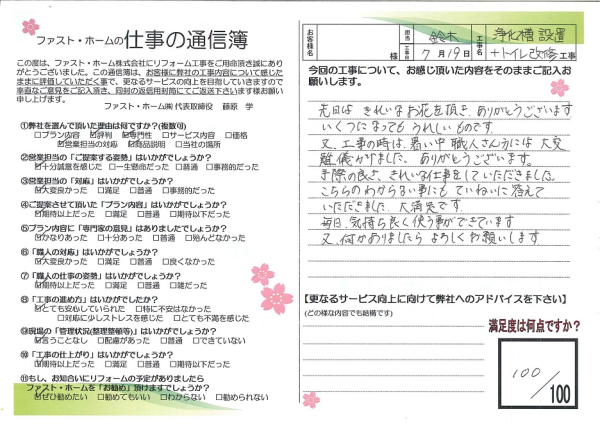 ファスト・ホームの仕事の通信簿
この度は、ファスト・ホーム株式会社にリフォーム工事をご用命頂き誠にあり
がとうございました。この通信簿は、お客様に弊社の工事内容について感じた
ままに評価していただく事で、更なるサービスの向上を目指していきますので
率直なご意見をご記入頂き、同封の返信用封筒にてご返送下さいます様お願い
申し上げます。
ファスト・ホーム㈱ 代表取締役 藤原 学
①弊社を選んで頂いた理由は何ですか?(複数可)
□プラン内容 ☑評判 ☑専門性 □サービス内容 □価格
☑営業担当の対応 ☑商品説明 □当社の場所
②営業担当の「ご提案する姿勢」はいかがでしょうか?
☑十分誠意を感じた □一生懸命だった □普通 □事務的だった
③営業担当の「対応」はいかがでしょうか?
☑大変良かった □満足 □普通 □事務的だった
④ご提案させて頂いた「プラン内容」はいかがでしょうか?
☑期待以上だった □満足 □普通 □期待以下だった
⑤プラン内容に「専門家の意見」はありましたでしょうか?
☑かなりあった □十分あった □普通 □殆んどなかった
⑥「職人の対応」はいかがでしょうか?
☑大変良かった □満足 □普通 □良くなかった
⑦「職人の仕事の姿勢」はいかがでしょうか?
☑期待以上だった □満足 □普通 □雑だった
⑧「工事の進め方」はいかがでしたか?
☑とても安心していられた □特に不安はなかった
□対応に少しストレスを感じた □とても不満を感じた
⑨現場の「管理状況(整理整頓等)」はいかがでしょうか?
☑言うことなし □配慮があった □普通 □できていない
⑩「工事の仕上がり」はいかがでしょうか?
☑期待以上だった □満足 □普通 □期待以下だった
⑪もし、お知合いにリフォームの予定がありましたら
ファスト・ホームを「お勧め」頂けますでしょうか?
☑ぜひ勧めたい □勧めてもいい □わからない □勧められない
お客様名
担当 鈴木
工事名 浄化槽 設置
工期 7月19日
+トイレ改修工事
今回の工事について、お感じ頂いた内容をそのままご記入お
願いします。
先日は きれいなお花を頂き、ありがとうございます
いくつになっても うれしいものです。
又、工事の時は、暑い中 職人さんたちには 大変
難儀かけました。ありがとうございます。
手際の良さ、きれいな仕事をしていただきました。
こちらのわからない事にも ていねいに答えて
いただきました、大満足です
毎日、気持ち良く使う事ができています
又、何かありましたら よろしくお願いします
【更なるサービス向上に向けて弊社へのアドバイスを下さい】
(どの様な内容でも結構です)
満足度は何点ですか?
100/100